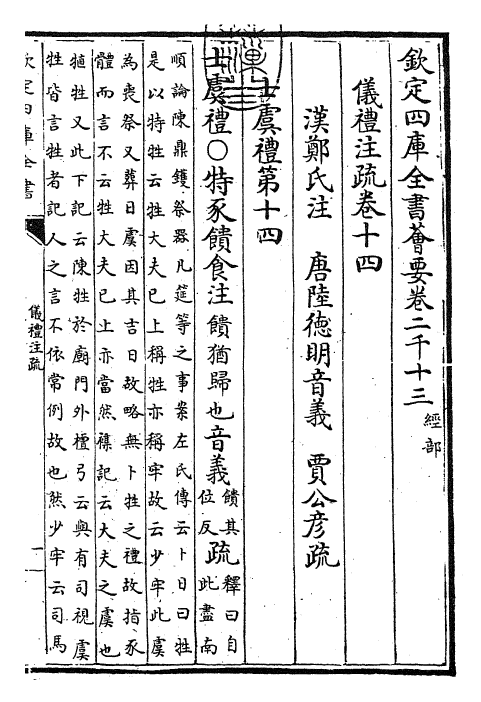 欽定四庫全書薈要卷二千十三經部
儀禮注疏卷十四
漢鄭氏注　唐陸德明音義　賈公彥疏
士虞禮第十四
士虞禮○特豕饋食注饋猶歸也音義饋其位反疏釋曰自此盡南
順論陳鼎鑊祭器凡筵等之事案左氏傳云卜日曰牲
是以特牲云牲大夫已上稱牲亦稱牢故云少牢此虞
為喪祭又葬日虞因其吉日故略無卜牲之禮故指豕
體而言不云牲大夫已上亦當然雜記云大夫之虞也
犆牲又此下記云陳牲於廟門外檀弓云與有司視虞
牲皆言牲者記人之言不依常例故也然少牢云司馬
欽定四庫全書
儀禮注疏
一